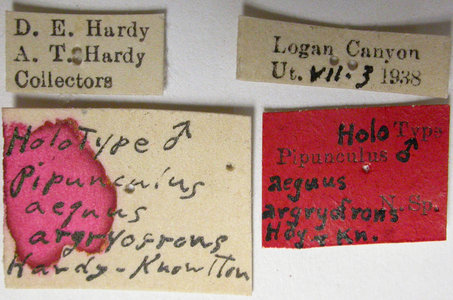 D. E. Hardy
A. T. Hardy
Collectors
Logan Canyon
Ut. VII-3 1938
HoloType ♂
Pipunculus
aequus
argryofrons
Hardy-Knowlton
Holo Type
Pipunculus ♂
aequus
N. Sp.
argryofrons
Hdy-Kn.